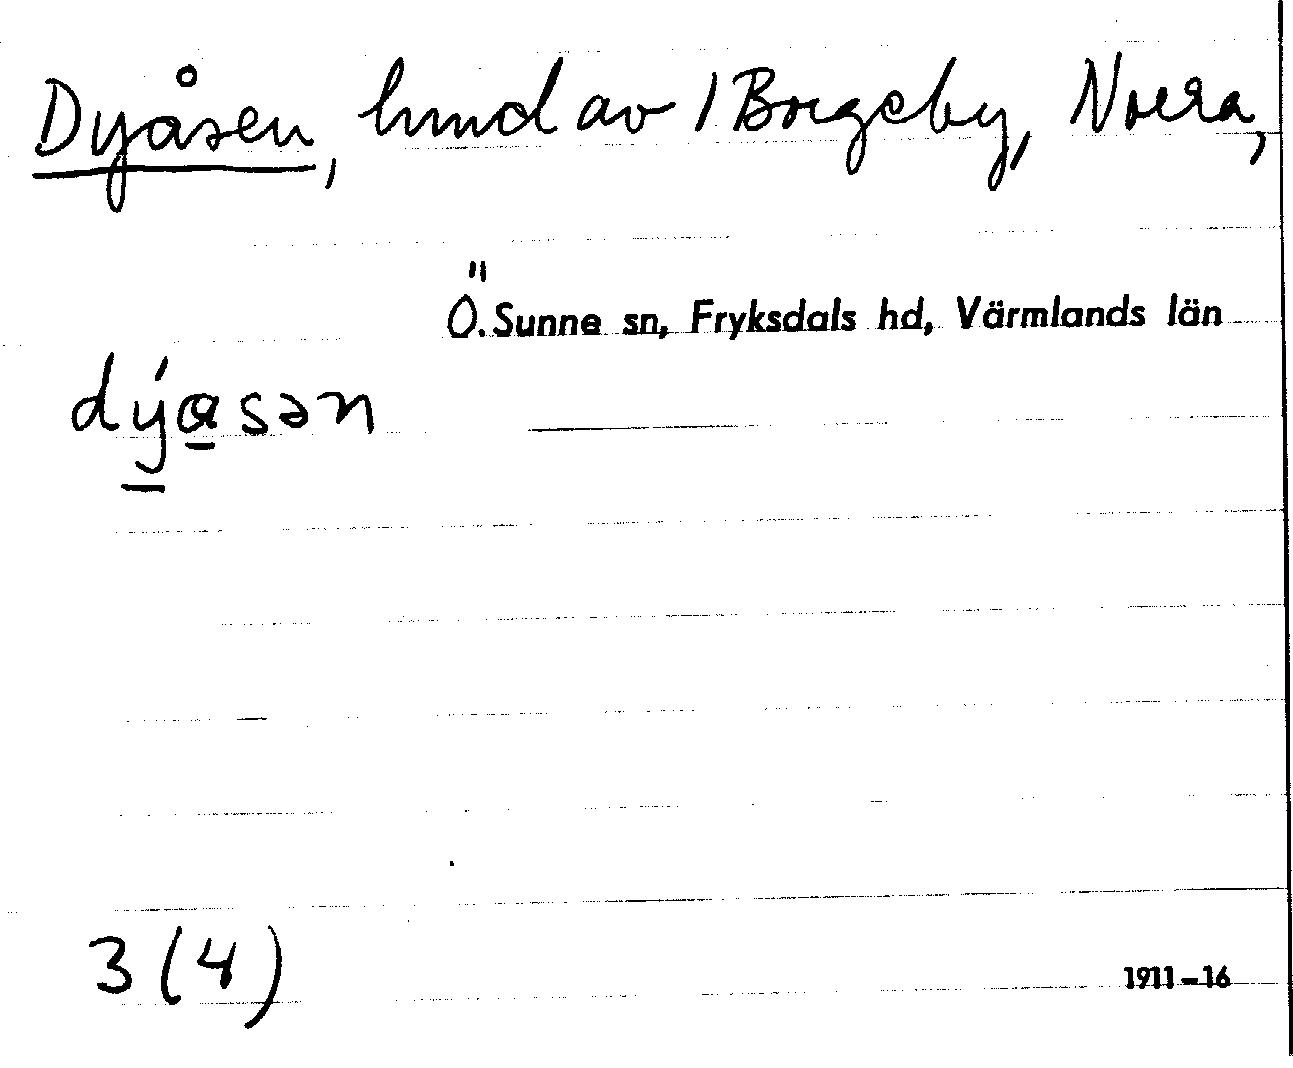 Dyåsen, hmd av 1 Borgeby, Norra,
Ö. Sunne sn, Fryksdals hd, Värmlands län
dýasən
3 (4)
1911–16